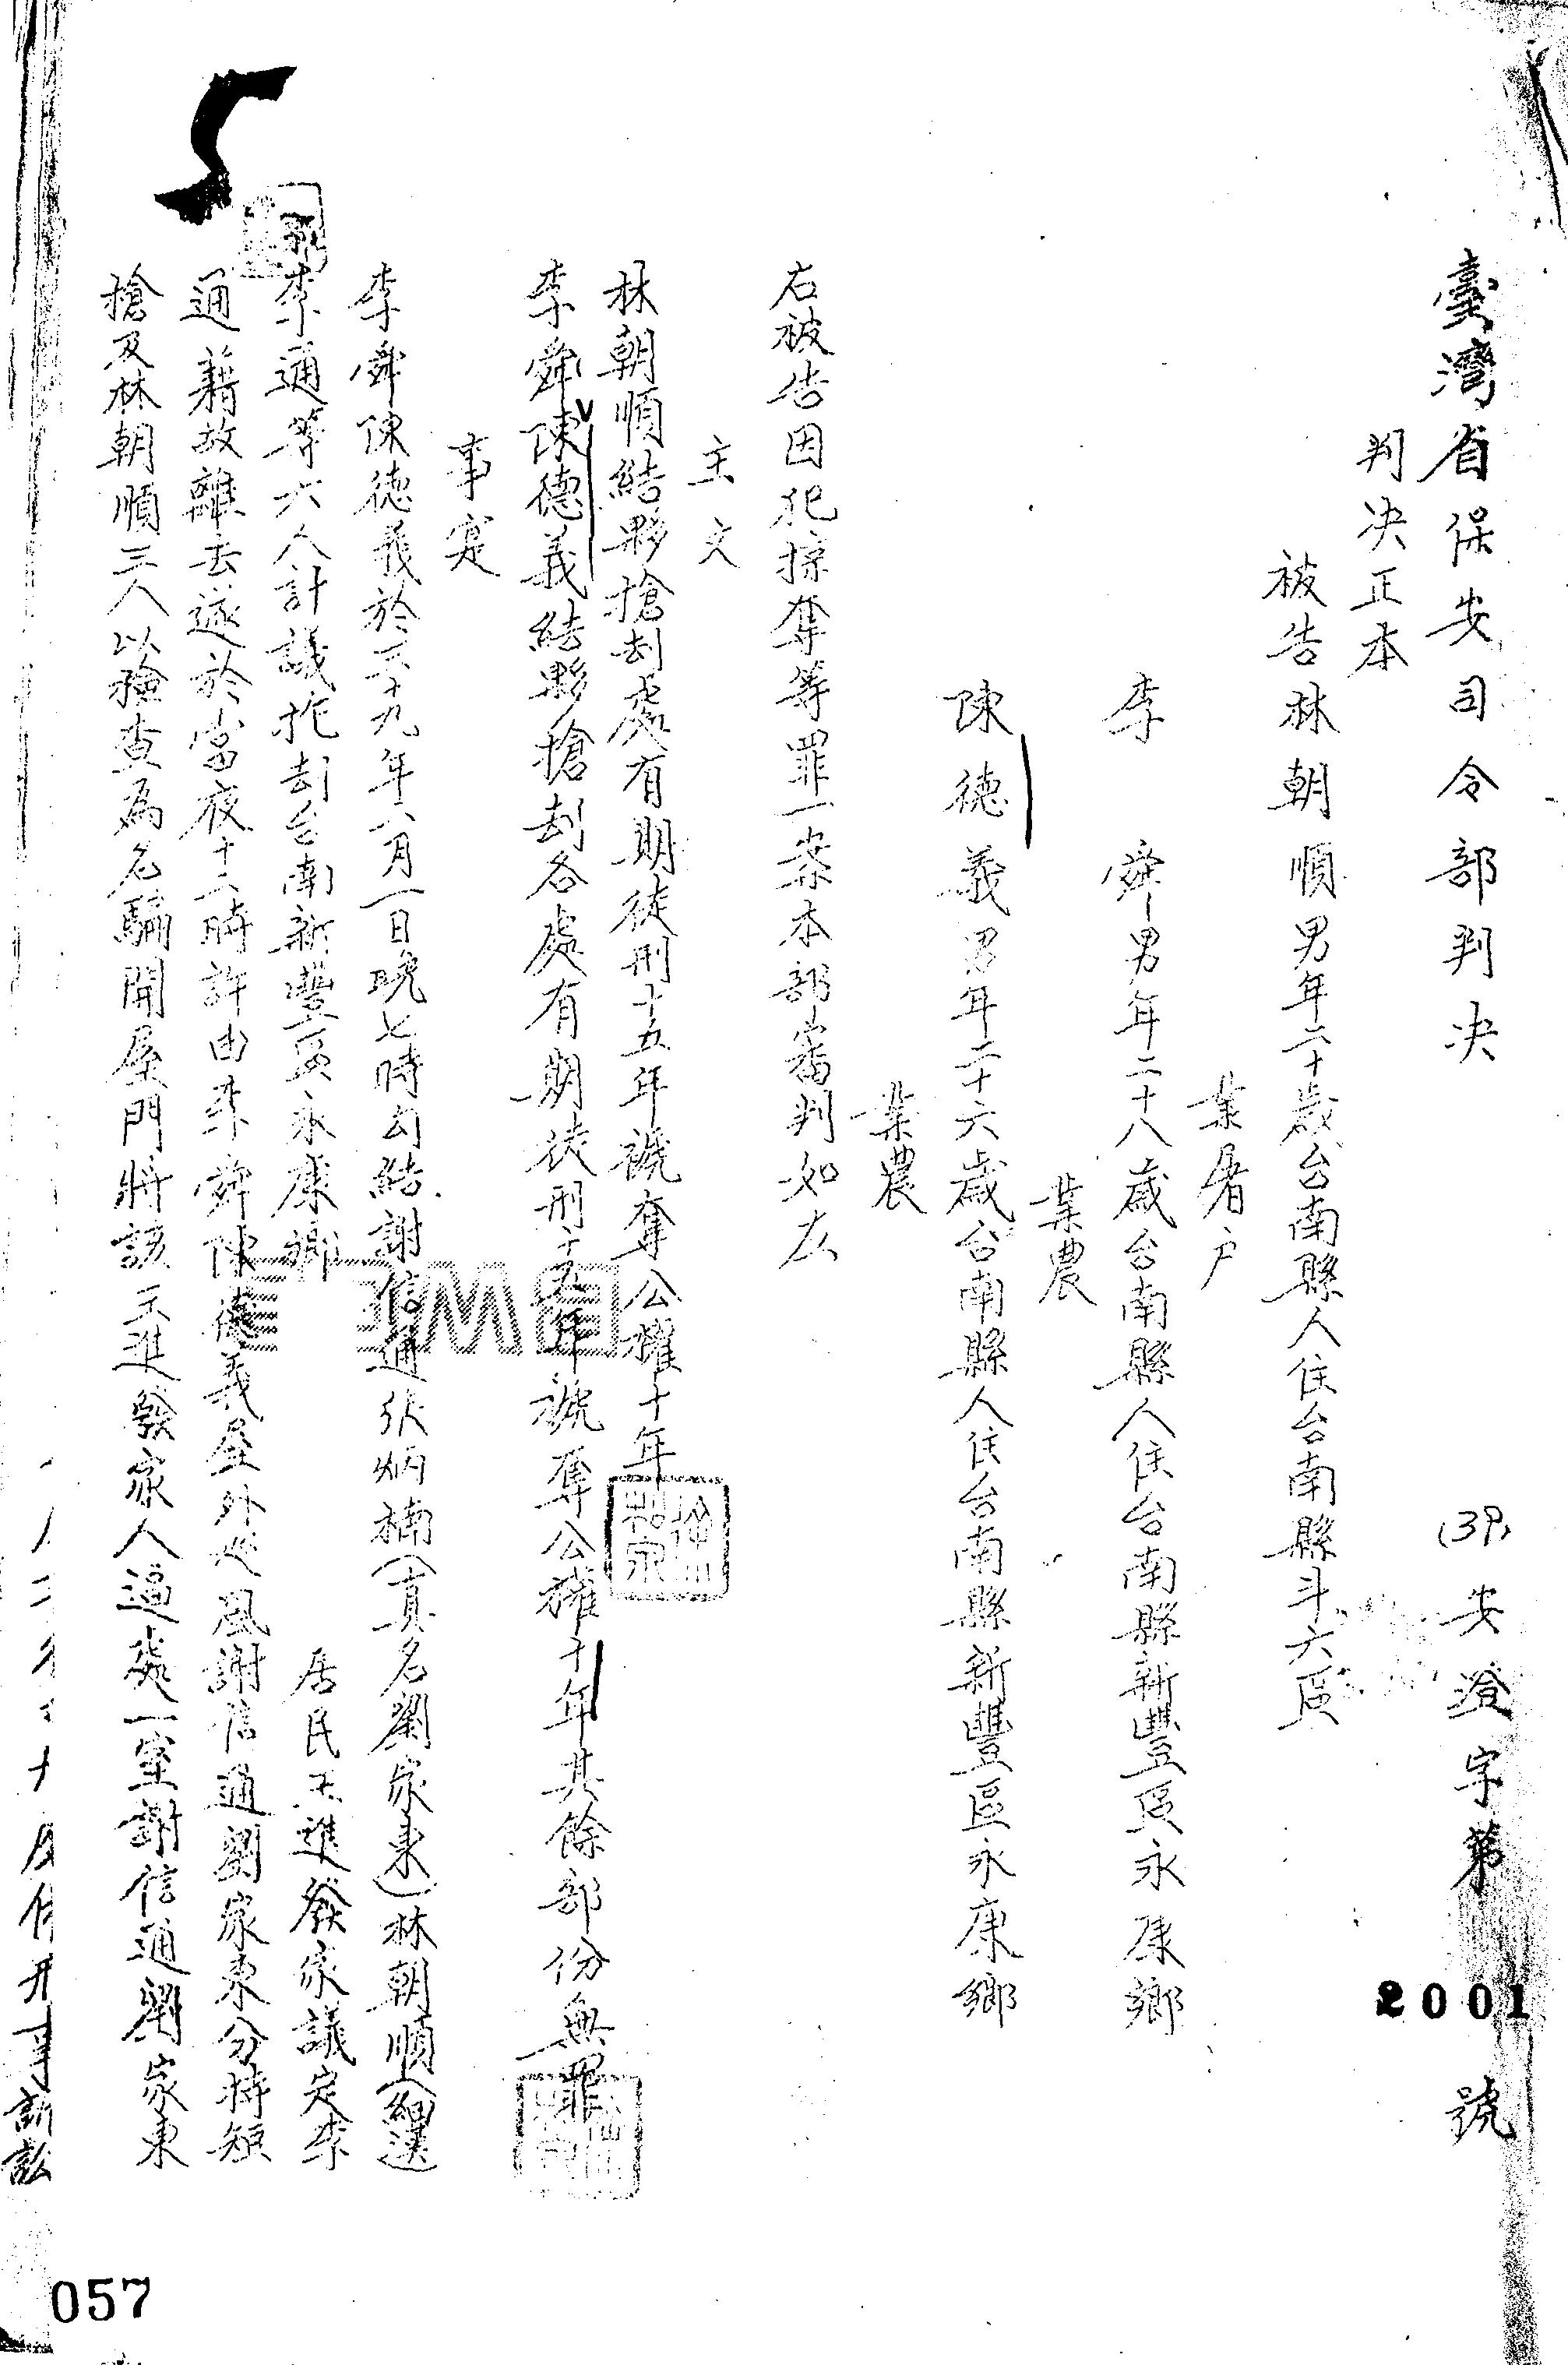 臺灣省保安司令部判决 (39)安澄字第2001號
判决正本
被告林朝順男年二十歲台南縣人住台南縣斗六區
業屠户
李舜男年二十八歲台南縣人住台南縣新豐區永康鄉
業農
陳德義男年二十六歲台南縣人住台南縣新豐區永康鄉
業農
右被告因犯掠奪等罪一案本部審判如左
主文
林朝順結夥搶刦處有期徒刑十五年褫奪公權十年
李舜陳德義結夥搶刦各處有期徒刑十五年褫奪公權十年其餘部份無罪
事实
李舜陳德義於三十九年六月一日晚七時勾結謝信通張炳楠(真名劉家東)林朝順(綽選)
李通等六人計議抢刦台南新豐區永康鄉居民王進發家議定李
通藉故離去遂於當夜十二時許由李舜陳德義屋外巡風謝信通劉家東分持短
槍及林朝順三人以檢查為名騙開屋門將該王進發家人逼處一室謝信通劉家東
057